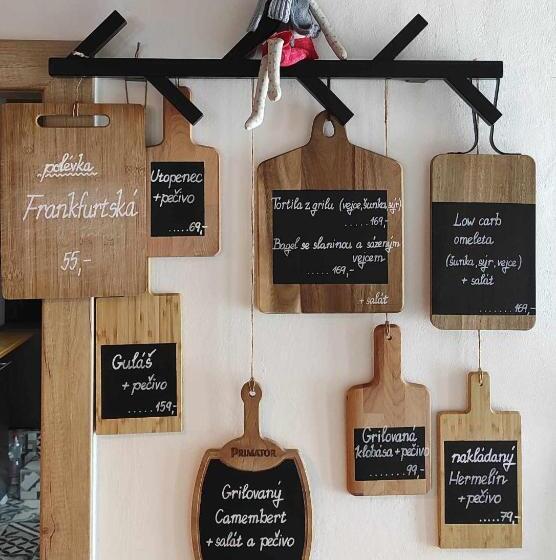 polévka
Frankfurtská
55,-
Utopenec
+pečivo
.....69,-
Tortila z grilu (vejce,šunka,sýr)
.....169,-
Bagel se slaninou a sázeným
vejcem
.....169,-
+ salát
Low carb
omeleta
(šunka, sýr, vejce)
+ salát
........169,-
Guláš
+ pečivo
.....159,-
PRIMATOR
Grilovaný
Camembert
+ salát a pečivo
Grilovaná
klobása + pečivo
........99,-
nakládaný
Hermelín
+ pečivo
.....79,-